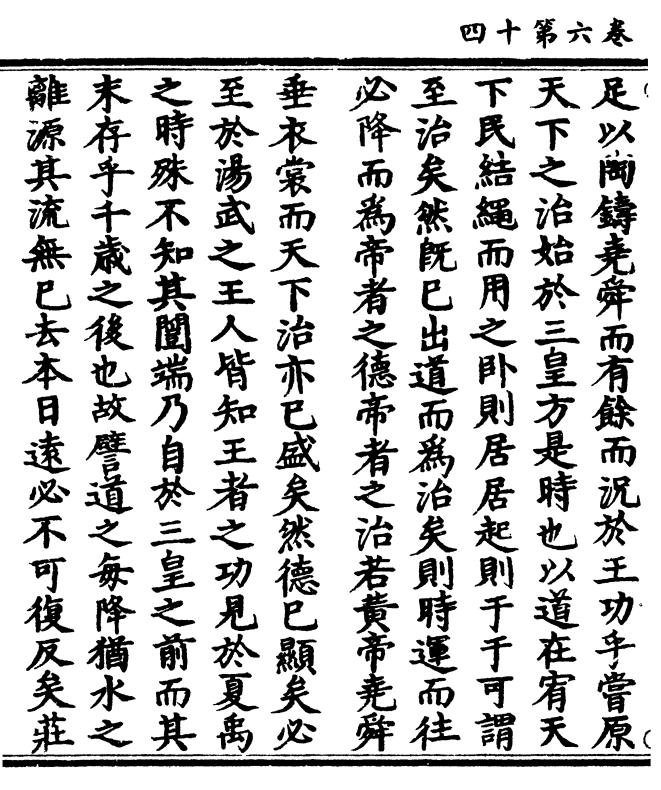 卷六第十四
足以陶鑄堯舜而有餘而況於王功乎嘗原
天下之治始於三皇方是時也以道在宥天
下民結繩而用之卧則居居起則于于可謂
至治矣然旣已出道而爲治矣則時運而往
必降而爲帝者之德帝者之治若黃帝堯舜
垂衣裳而天下治亦已盛矣然德已顯矣必
至於湯武之王人皆知王者之功見於夏禹
之時殊不知其舋端乃自於三皇之前而其
末存乎千歲之後也故譬道之每降猶水之
離源其流無已去本日遠必不可復反矣莊